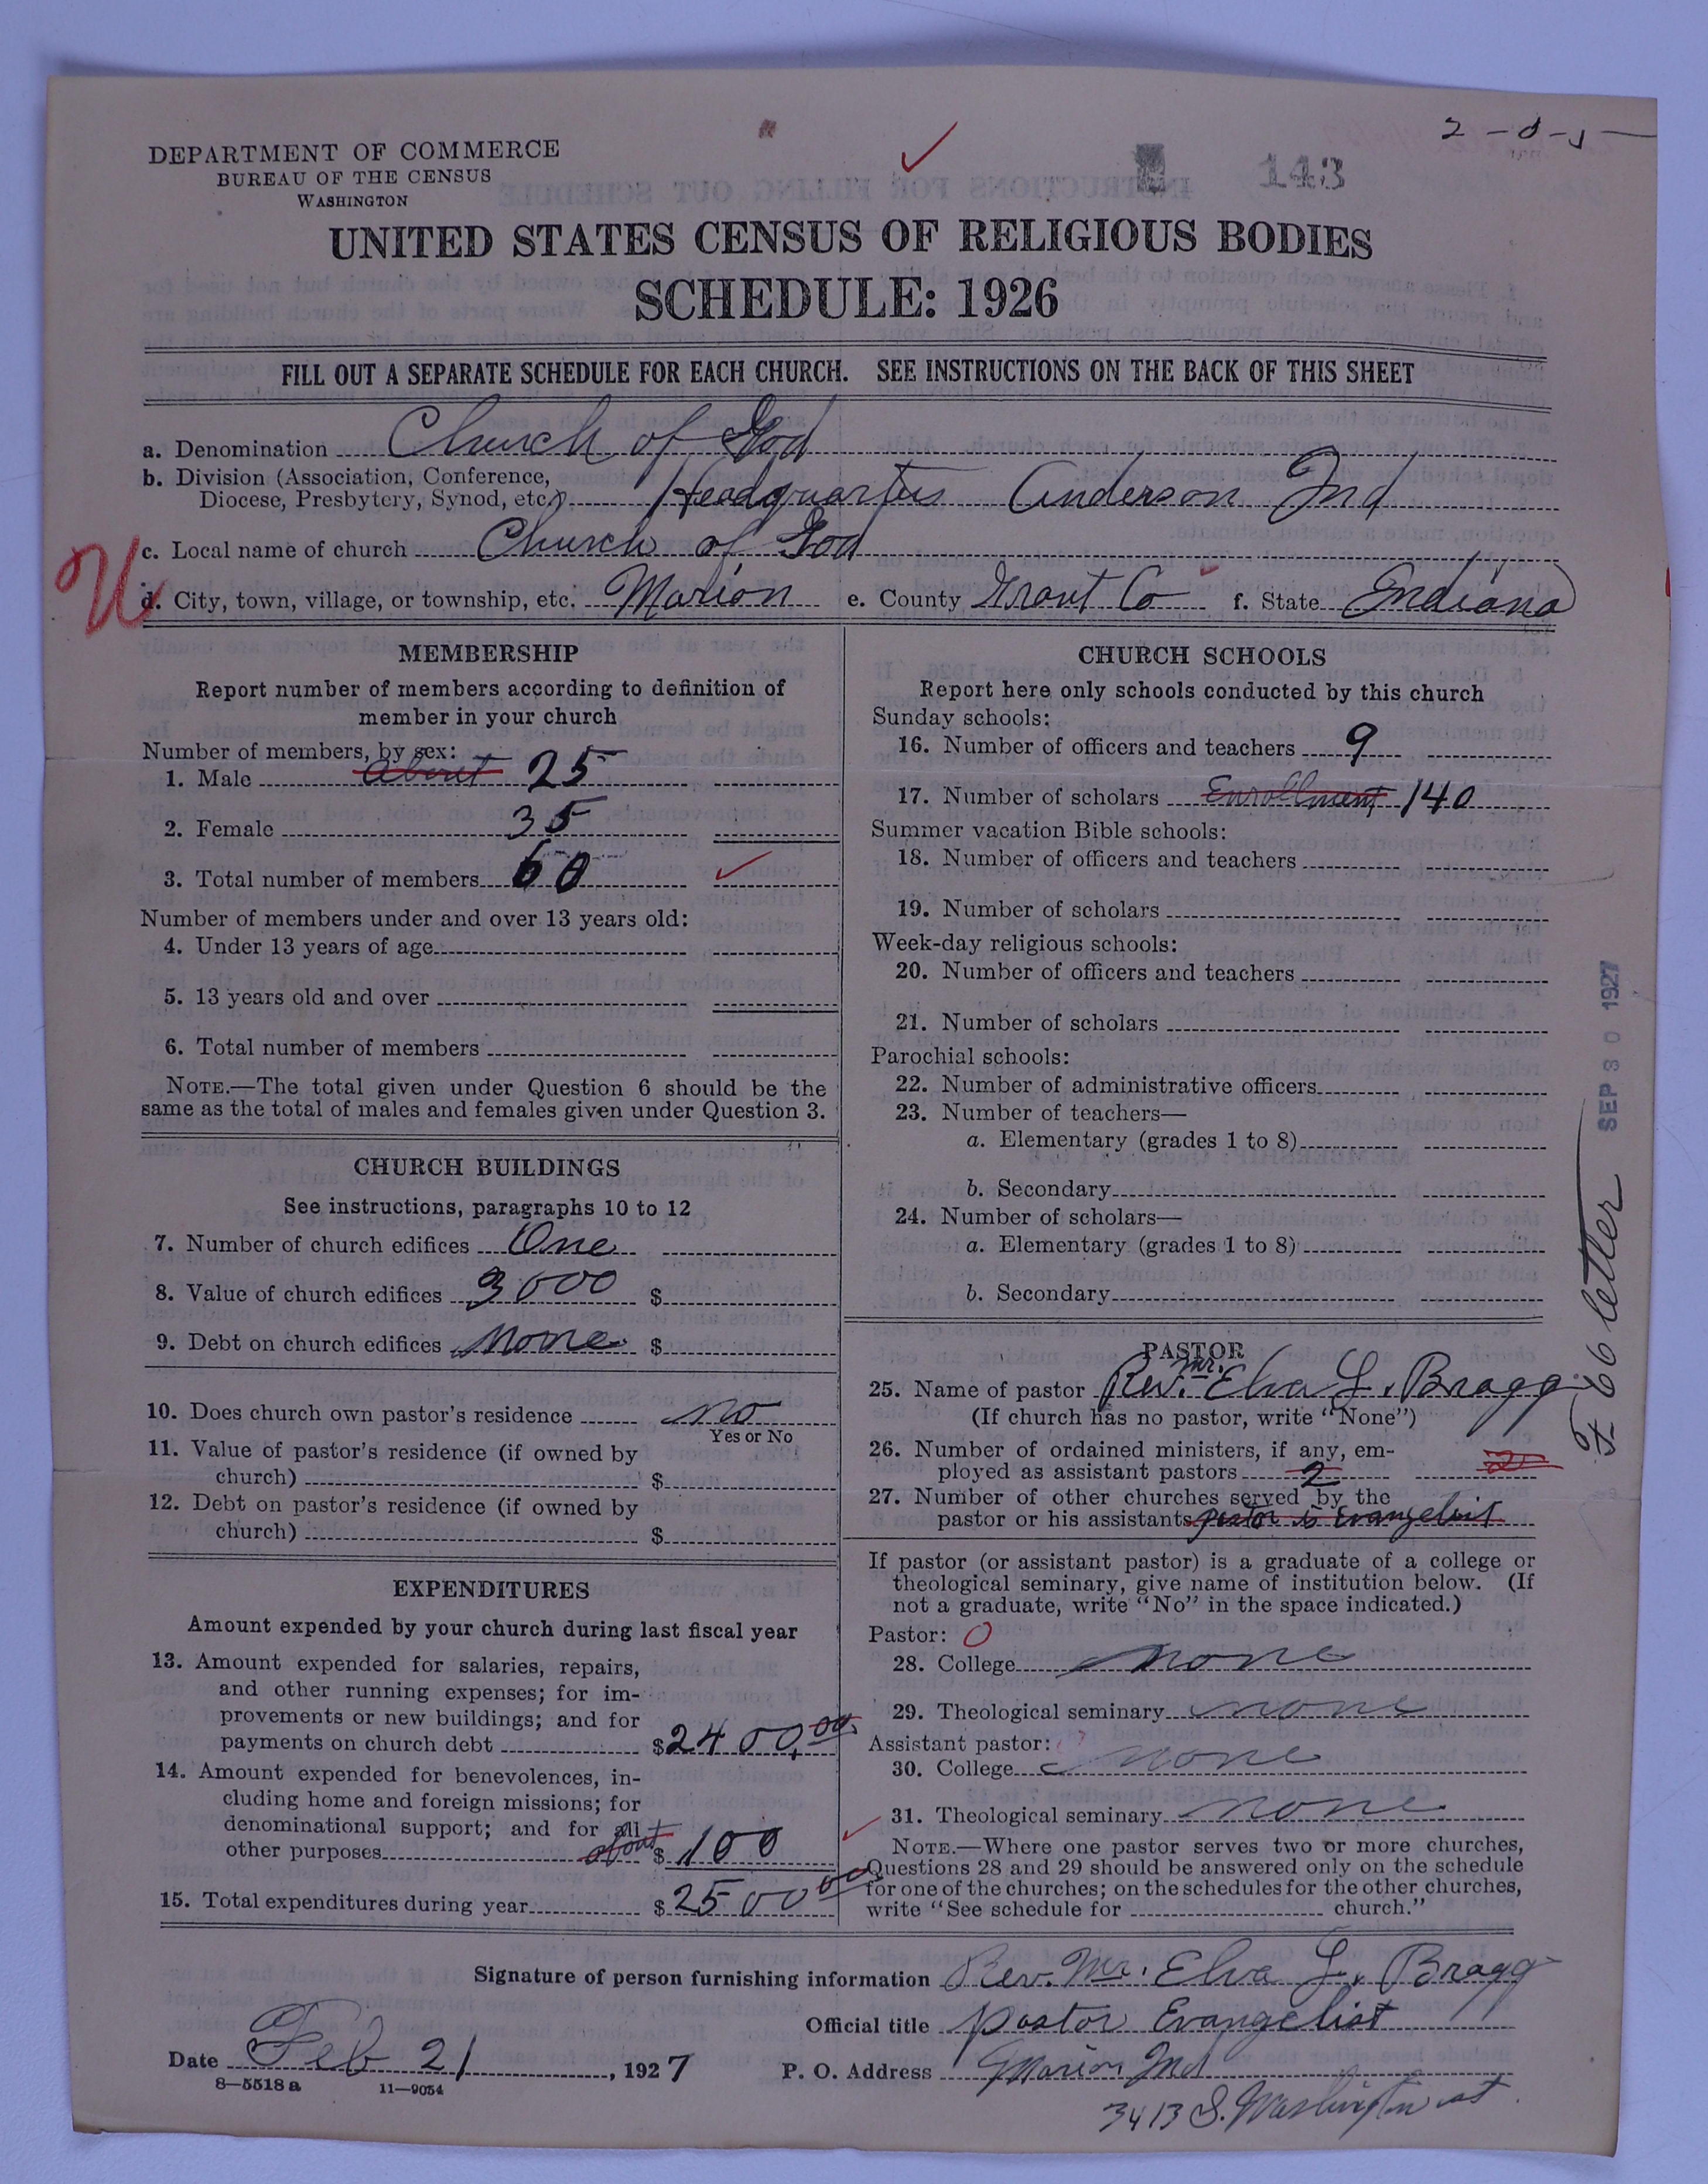 2-0-5
143
DEPARTMENT OF COMMERCE
BUREAU OF THE CENSUS
WASHINGTON
UNITED STATES CENSUS OF RELIGIOUS BODIES
SCHEDULE: 1926
FILL OUT A SEPARATE SCHEDULE FOR EACH CHURCH. SEE INSTRUCTIONS ON THE BACK OF THIS SHEET
a. Denomination Church of God
b. Division (Association, Conference,
Diocese, Presbytery, Synod, etc.) Headquarters Anderson Ind
c. Local name of church Church of God
U
d. City, town, village, or township, etc. Marion e. County Grant Co f. State Indiana
MEMBERSHIP
Report number of members according to definition of
member in your church
Number of members, by sex:
1. Male About 25
2. Female 35
3. Total number of members 60
Number of members under and over 13 years old:
4. Under 13 years of age
5. 13 years old and over
6. Total number of members
NOTE.—The total given under Question 6 should be the
same as the total of males and females given under Question 3.
CHURCH BUILDINGS
See instructions, paragraphs 10 to 12
7. Number of church edifices One
8. Value of church edifices 3000 $
9. Debt on church edifices None $
10. Does church own pastor's residence no
Yes or No
11. Value of pastor's residence (if owned by
church) $
12. Debt on pastor's residence (if owned by
church) $
EXPENDITURES
Amount expended by your church during last fiscal year
13. Amount expended for salaries, repairs,
and other running expenses; for im-
provements or new buildings; and for
payments on church debt $2400.00
14. Amount expended for benevolences, in-
cluding home and foreign missions; for
denominational support; and for all
other purposes about $100
15. Total expenditures during year $250000
CHURCH SCHOOLS
Report here only schools conducted by this church
Sunday schools:
16. Number of officers and teachers 9
17. Number of scholars Enrollment 140
Summer vacation Bible schools:
18. Number of officers and teachers
19. Number of scholars
Week-day religious schools:
20. Number of officers and teachers
21. Number of scholars
Parochial schools:
22. Number of administrative officers
23. Number of teachers—
a. Elementary (grades 1 to 8)
b. Secondary
24. Number of scholars—
a. Elementary (grades 1 to 8)
b. Secondary
PASTOR
25. Name of pastor Rev. Mr. Elva L. Bragg
(If church has no pastor, write "None")
26. Number of ordained ministers, if any, em-
ployed as assistant pastors 2 2
27. Number of other churches served by the
pastor or his assistants pastor is Evangelist
If pastor (or assistant pastor) is a graduate of a college or
theological seminary, give name of institution below. (If
not a graduate, write "No" in the space indicated.)
Pastor: 0
28. College none
29. Theological seminary none
Assistant pastor:
30. College none
31. Theological seminary none
NOTE.—Where one pastor serves two or more churches,
Questions 28 and 29 should be answered only on the schedule
for one of the churches; on the schedules for the other churches,
write "See schedule for church."
SEP 30 1927
F 66 letter
Signature of person furnishing information Rev. Mr. Elva L. Bragg
Official title pastor Evangelist
Date Feb 21, 1927 P. O. Address Marion Ind
8—5518 a 11—9054
3413 S. Washington st